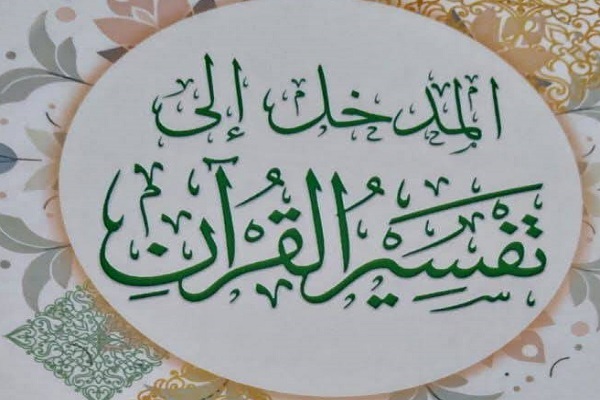 المدخل إلى
تفسير القرآن